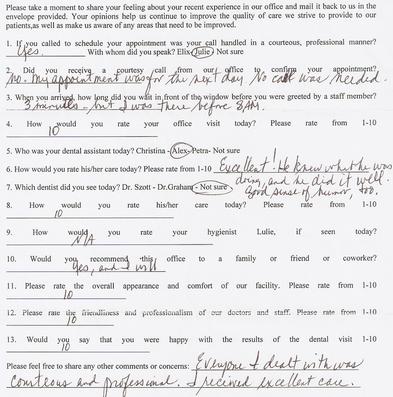 Please take a moment to share your feeling about your recent experience in our office and mail it back to us in the
envelope provided. Your opinions help us continue to improve the quality of care we strive to provide to our
patients,as well as make us aware of any areas that need to be improved.
1. If you called to schedule your appointment was your call handled in a courteous, professional manner?
Yes. With whom did you speak? Elix Julie Not sure
2. Did you receive a courtesy call from our office to confirm your appointment?
No. My appointment was for the next day. No call was needed.
3. When you arrived, how long did you wait in front of the window before you were greeted by a staff member?
3 minutes - but I was there before 8AM.
4. How would you rate your office visit today? Please rate from 1-10
10
5. Who was your dental assistant today? Christina - Alex- Petra- Not sure
6. How would you rate his/her care today? Please rate from 1-10 Excellent! He knew what he was
doing, and he did it well.
7. Which dentist did you see today? Dr. Szott - Dr.Graham - Not sure
Good sense of humor, too.
8. How would you rate his/her care today? Please rate from 1-10
10
9. How would you rate your hygienist Lulie, if seen today?
N/A
10. Would you recommend this office to a family or friend or coworker?
Yes, and I will
11. Please rate the overall appearance and comfort of our facility. Please rate from 1-10
10
12. Please rate the friendliness and professionalism of our doctors and staff. Please rate from 1-10
10
13. Would you say that you were happy with the results of the dental visit 1-10
10
Please feel free to share any other comments or concerns: Everyone I dealt with was
courteous and professional. I received excellent care.